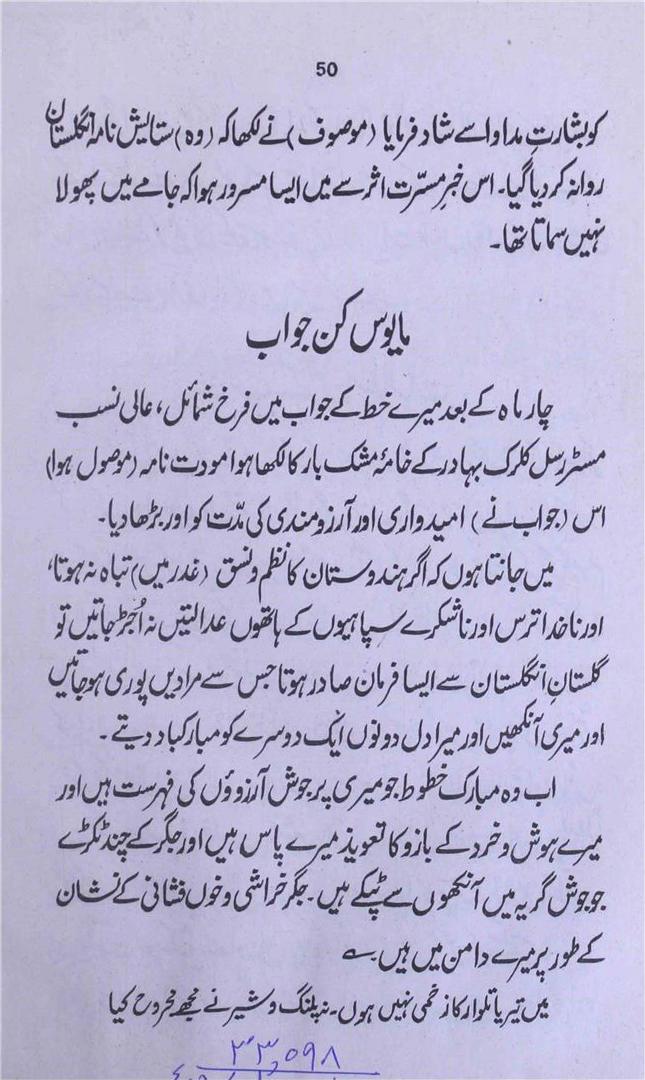 50
کو بشارتِ مداوا سے شاد فرمایا (موصوف) نے لکھا کہ (وہ) ستایش نامہ انگلستان
روانہ کر دیا گیا۔ اس خبرِ مسرّت اثر سے میں ایسا مسرور ہوا کہ جامے میں پھولا
نہیں سماتا تھا۔
مایوس کن جواب
چار ماہ کے بعد میرے خط کے جواب میں فرخ شمائل، عالی نسب
مسٹر رسل کلرک بہادر کے خامۂ مشک بار کا لکھا ہوا مودت نامہ (موصول ہوا)
اس (جواب نے) امیدواری اور آرزومندی کی مدّت کو اور بڑھا دیا۔
میں جانتا ہوں کہ اگر ہندوستان کا نظم و نسق (غدر میں) تباہ نہ ہوتا،
اور ناخدا ترس اور ناشکرے سپاہیوں کے ہاتھوں عدالتیں نہ اُجڑ جاتیں تو
گلستانِ انگلستان سے ایسا فرمان صادر ہوتا جس سے مرادیں پوری ہو جاتیں
اور میری آنکھیں اور میرا دل دونوں ایک دوسرے کو مبارکباد دیتے۔
اب وہ مبارک خطوط جو میری پرجوش آرزوؤں کی فہرست ہیں اور
میرے ہوش و خرد کے بازو کا تعویذ میرے پاس ہیں اور جگر کے چند ٹکڑے
جو جوش گریہ میں آنکھوں سے ٹپکے ہیں۔ جگر خراشی و خوں فشانی کے نشان
کے طور پر میرے دامن میں ہیں ؎
میں تیر یا تلوار کا زخمی نہیں ہوں۔ نہ پلنگ و شیر نے مجھے مجروح کیا
۲۳,۰۹۸